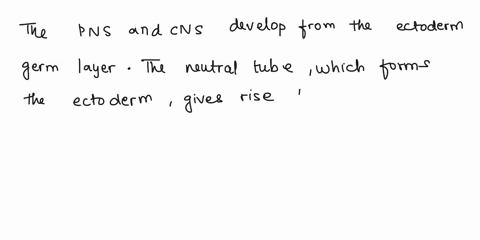 The PNS and CNS develop from the ectoderm
germ layer. The neutral tube, which forms
the ectoderm, gives rise '